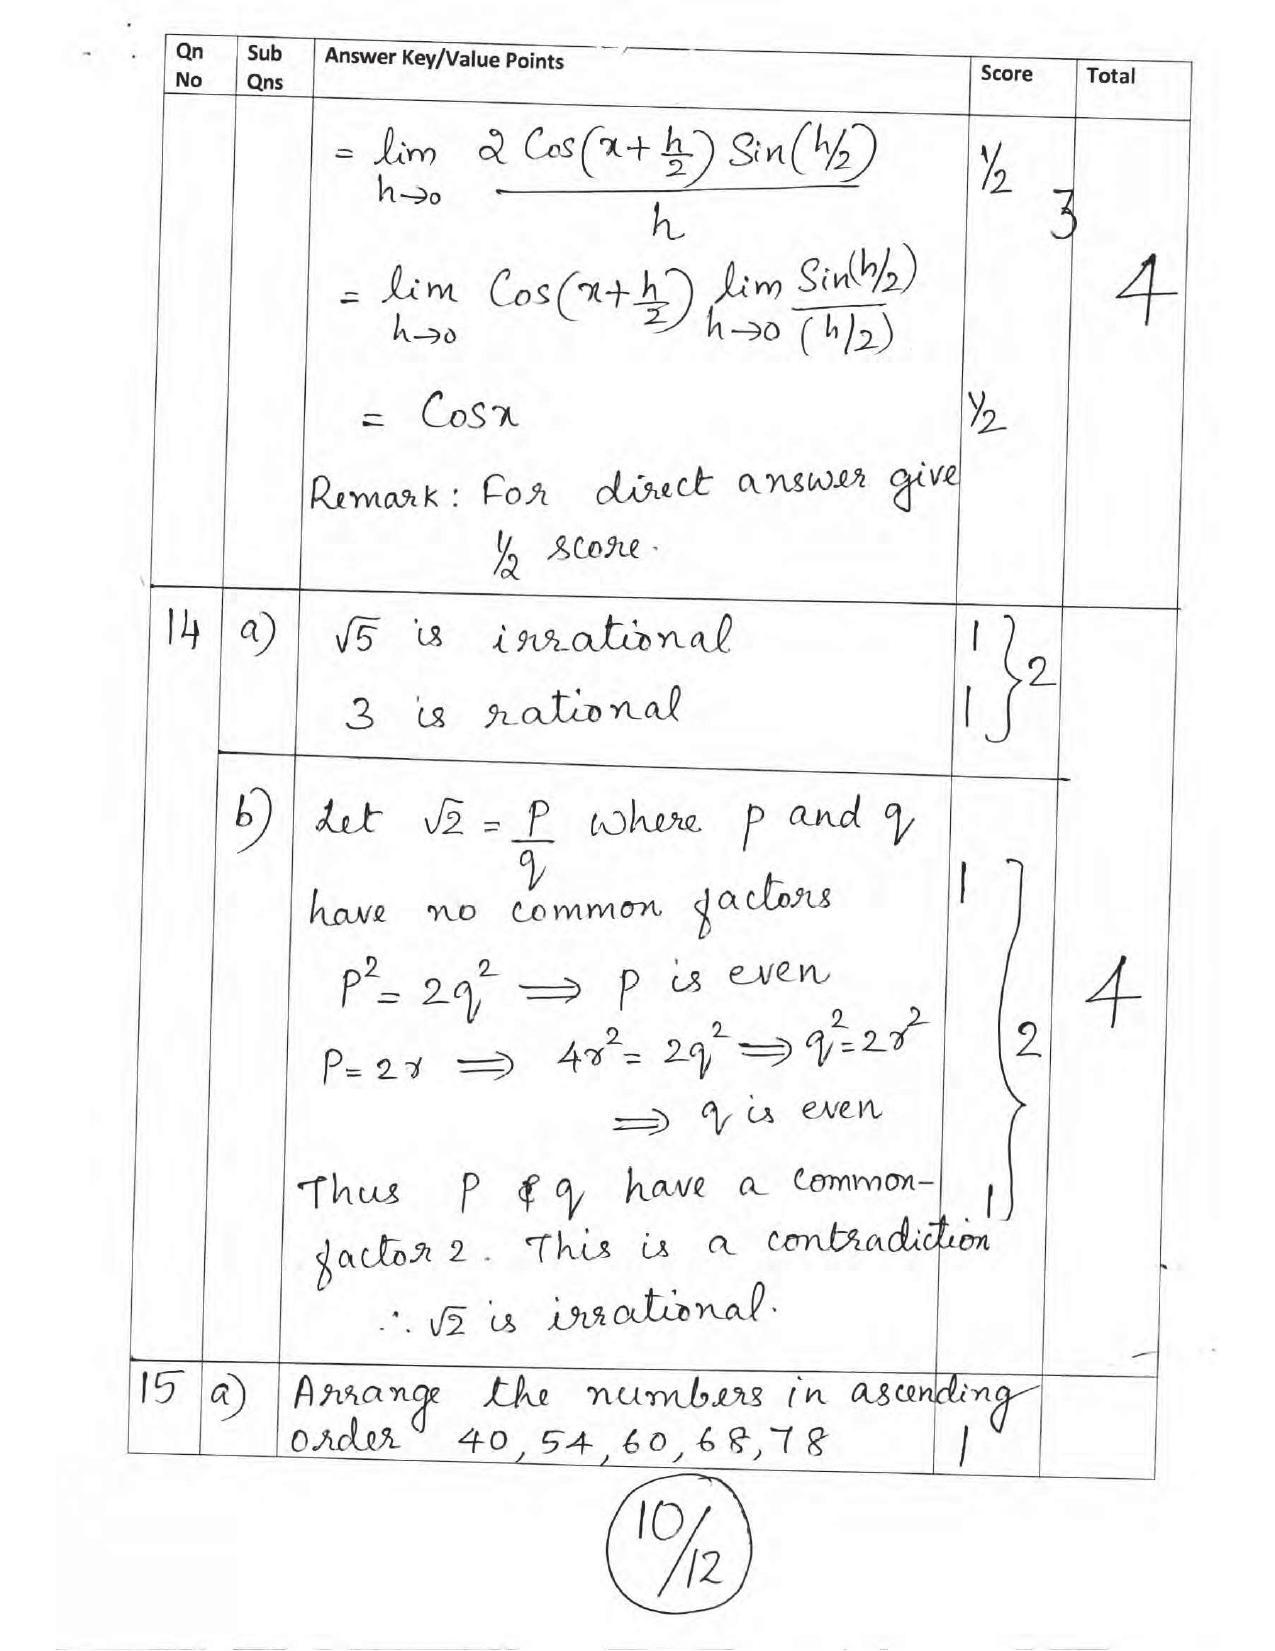 Qn No Sub Qns Answer Key/Value Points Score Total
= lim h→0 2 Cos(x+h/2) Sin(h/2) / h ½ 3
= lim h→0 Cos(x+h/2) lim h→0 Sin(h/2)/(h/2) 4
= Cosx ½
Remark: For direct answer give
½ score.
14 a) √5 is irrational 1
3 is rational 1 2
b) Let √2 = P/q where p and q
have no common factors 1
P² = 2q² ⟹ p is even 4
P = 2r ⟹ 4r² = 2q² ⟹ q² = 2r² 2
⟹ q is even
Thus P & q have a common- 1
factor 2. This is a contradiction
∴ √2 is irrational.
15 a) Arrange the numbers in ascending
order 40, 54, 60, 68, 78 1
10/12